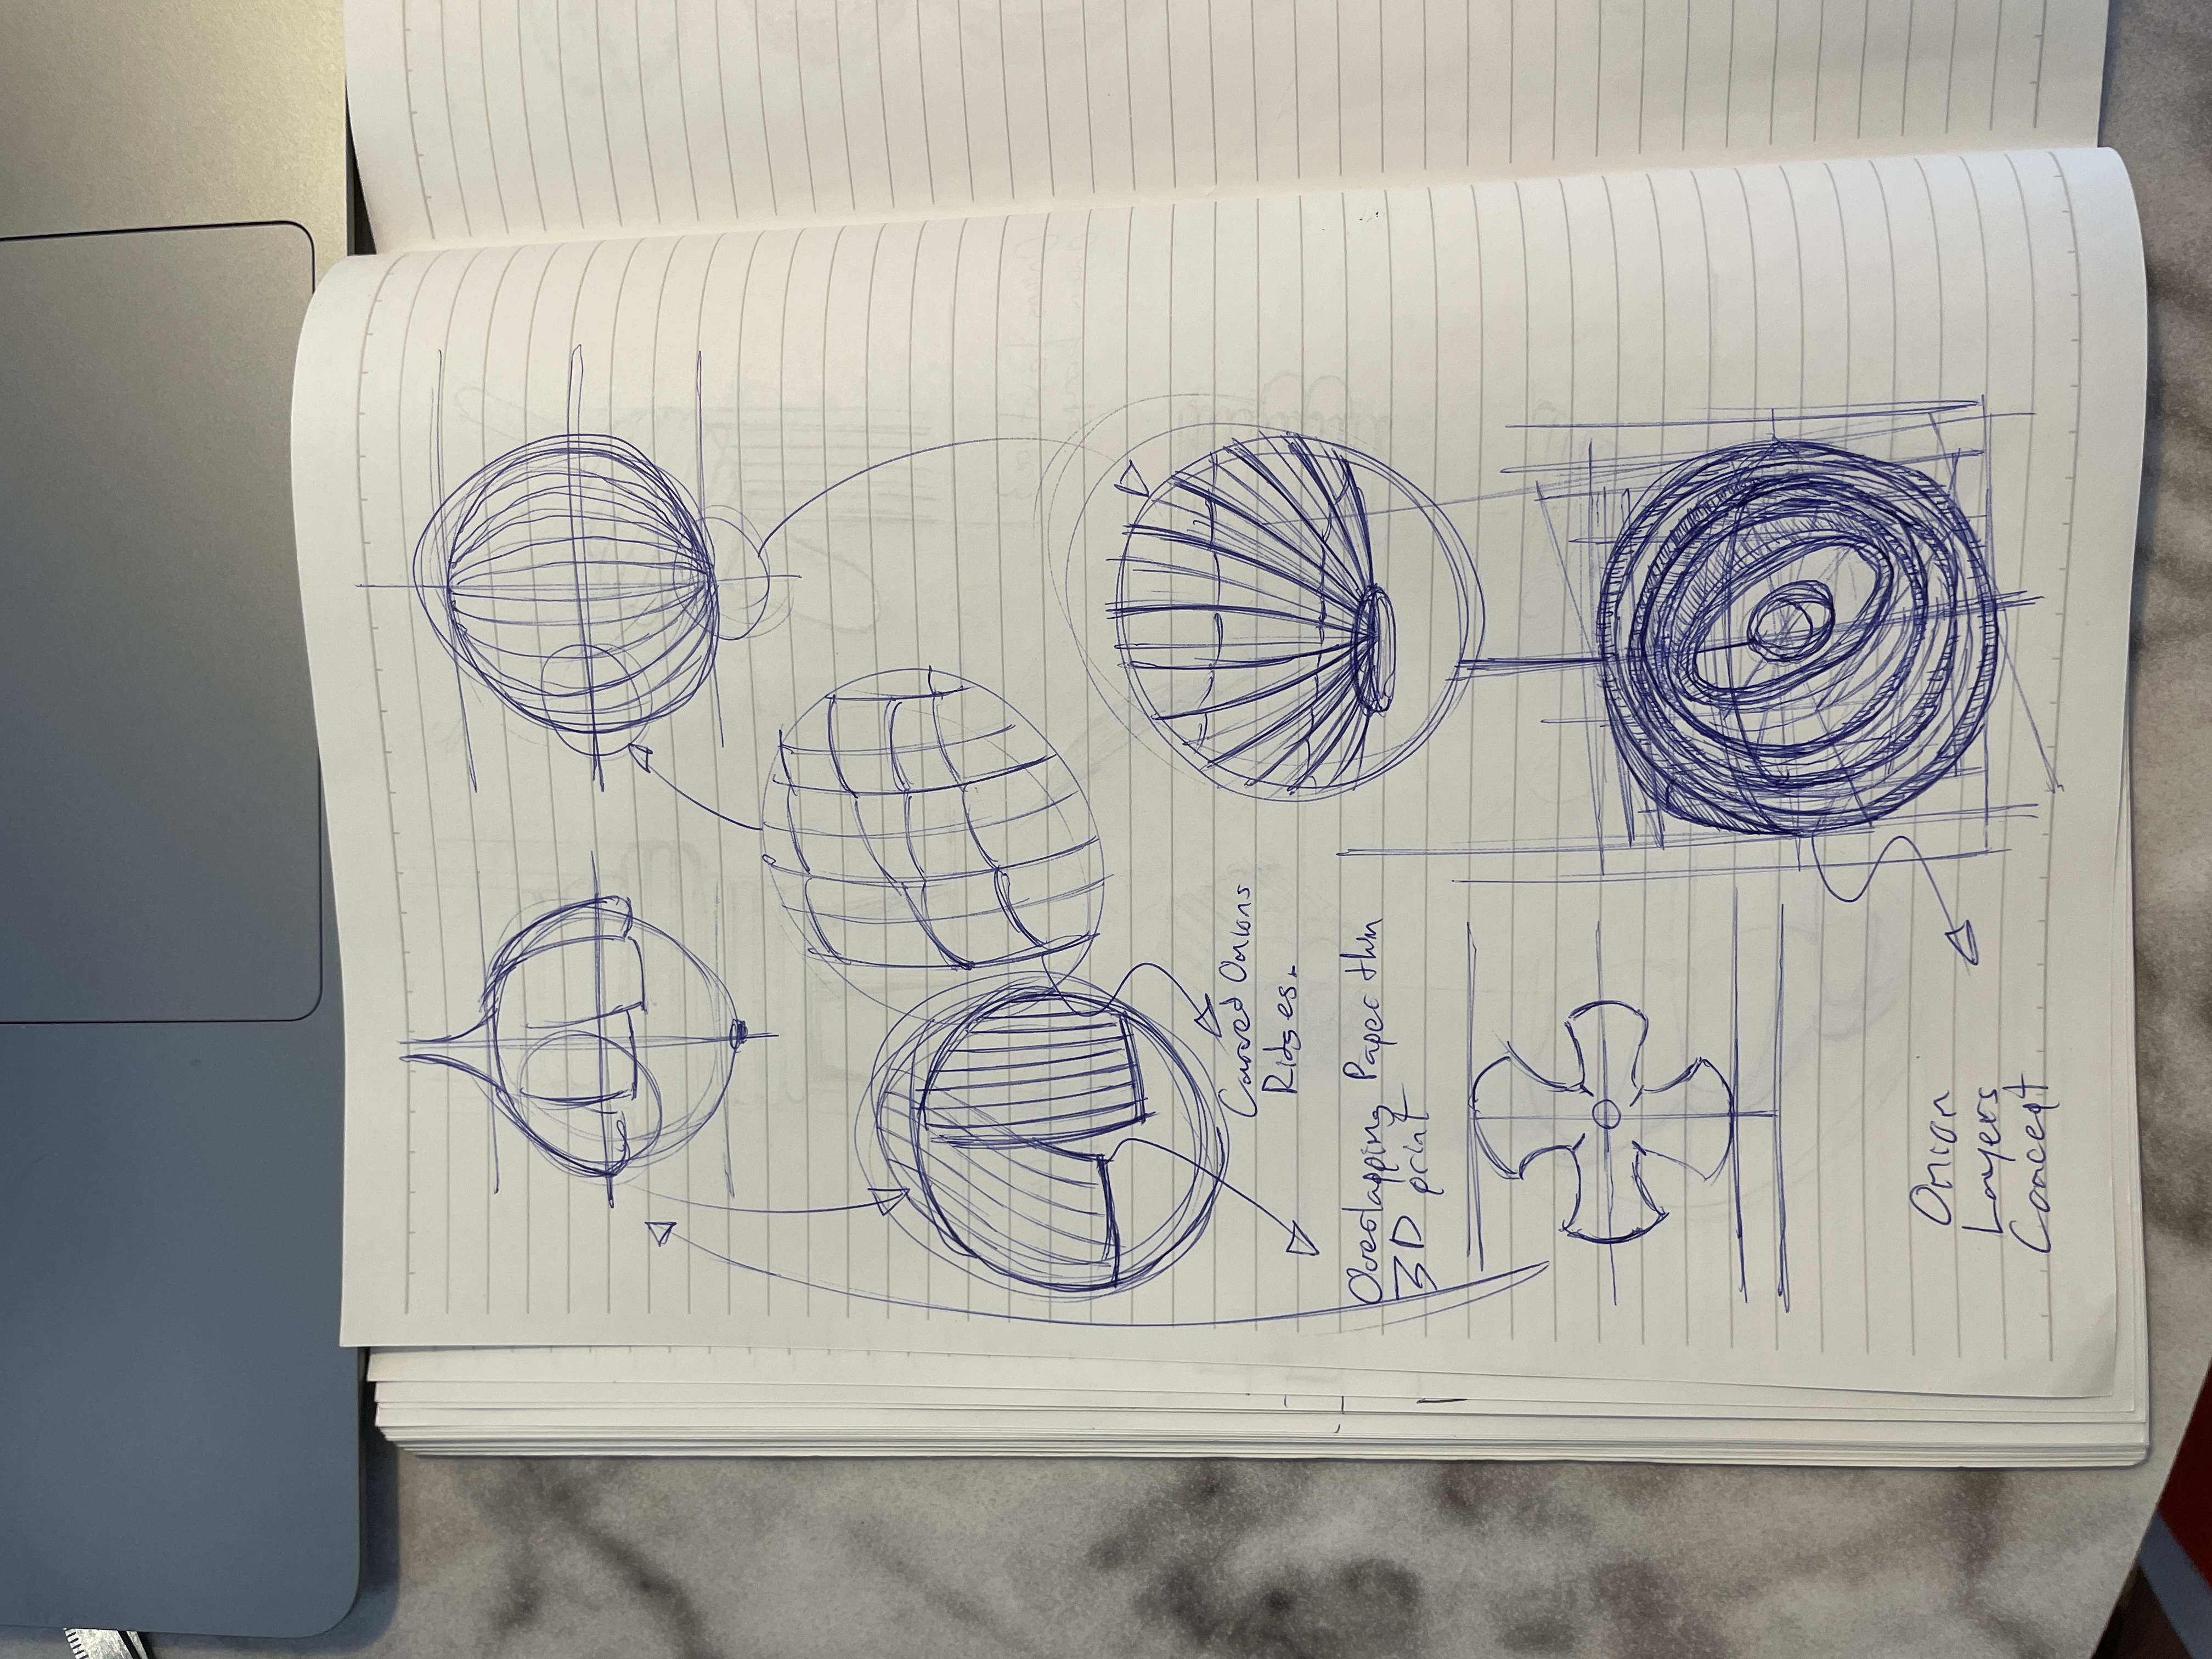 Curved Onions
Ridges.
Overlapping Paper thin
3D print
Onion
Layers
Concept